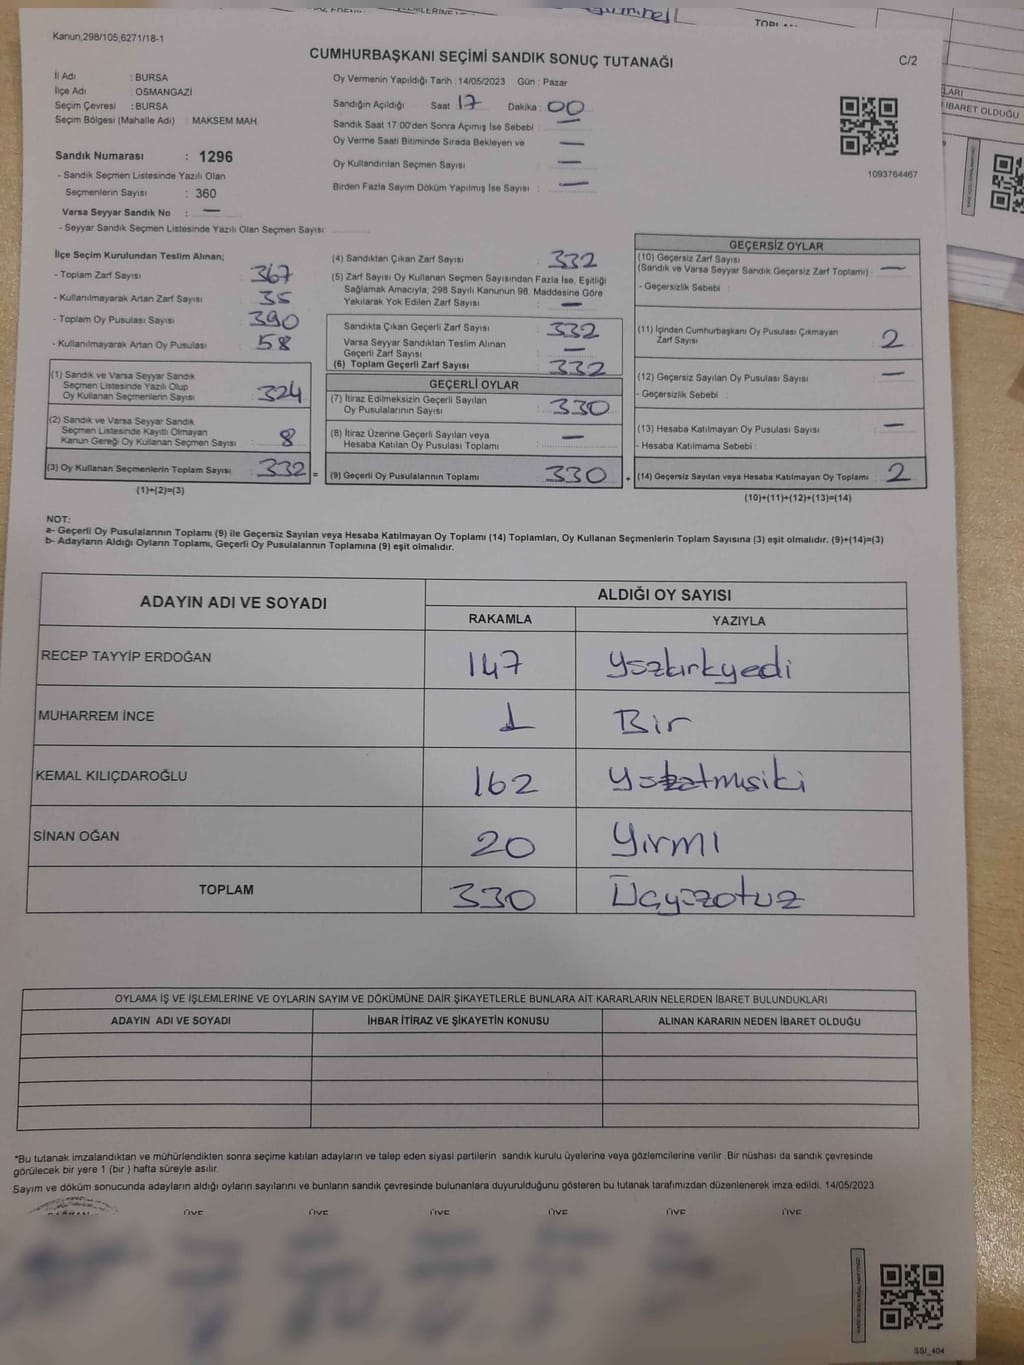 Kanun;298/105;6271/18-1
CUMHURBAŞKANI SEÇİMİ SANDIK SONUÇ TUTANAĞI
C/2
İl Adı : BURSA
İlçe Adı : OSMANGAZİ
Seçim Çevresi : BURSA
Seçim Bölgesi (Mahalle Adı) : MAKSEM MAH.
Sandık Numarası : 1296
- Sandık Seçmen Listesinde Yazılı Olan
Seçmenlerin Sayısı : 360
Varsa Seyyar Sandık No : —
- Seyyar Sandık Seçmen Listesinde Yazılı Olan Seçmen Sayısı:
Oy Vermenin Yapıldığı Tarih : 14/05/2023 Gün : Pazar
Sandığın Açıldığı Saat : 17 Dakika : 00
Sandık Saat 17:00'den Sonra Açımış İse Sebebi : —
Oy Verme Saati Bitiminde Sırada Bekleyen ve —
Oy Kullandırılan Seçmen Sayısı : —
Birden Fazla Sayım Döküm Yapılmış İse Sayısı : —
1093764467
İlçe Seçim Kurulundan Teslim Alınan;
- Toplam Zarf Sayısı : 367
- Kullanılmayarak Artan Zarf Sayısı : 35
- Toplam Oy Pusulası Sayısı : 390
- Kullanılmayarak Artan Oy Pusulası : 58
(1) Sandık ve Varsa Seyyar Sandık
Seçmen Listesinde Yazılı Olup
Oy Kullanan Seçmenlerin Sayısı : 324
(2) Sandık ve Varsa Seyyar Sandık
Seçmen Listesinde Kayıtlı Olmayan
Kanun Gereği Oy Kullanan Seçmen Sayısı : 8
(3) Oy Kullanan Seçmenlerin Toplam Sayısı : 332 =
(1)+(2)=(3)
(4) Sandıktan Çıkan Zarf Sayısı : 332
(5) Zarf Sayısı Oy Kullanan Seçmen Sayısından Fazla İse, Eşitliği
Sağlamak Amacıyla; 298 Sayılı Kanunun 98. Maddesine Göre
Yakılarak Yok Edilen Zarf Sayısı : —
Sandıkta Çıkan Geçerli Zarf Sayısı : 332
Varsa Seyyar Sandıktan Teslim Alınan
Geçerli Zarf Sayısı : —
(6) Toplam Geçerli Zarf Sayısı : 332
GEÇERLİ OYLAR
(7) İtiraz Edilmeksizin Geçerli Sayılan
Oy Pusulalarının Sayısı : 330
(8) İtiraz Üzerine Geçerli Sayılan veya
Hesaba Katılan Oy Pusulası Toplamı : —
(9) Geçerli Oy Pusulalarının Toplamı : 330 +
GEÇERSİZ OYLAR
(10) Geçersiz Zarf Sayısı
(Sandık ve Varsa Seyyar Sandık Geçersiz Zarf Toplamı) : —
- Geçersizlik Sebebi :
(11) İçinden Cumhurbaşkanı Oy Pusulası Çıkmayan
Zarf Sayısı : 2
(12) Geçersiz Sayılan Oy Pusulası Sayısı : —
- Geçersizlik Sebebi :
(13) Hesaba Katılmayan Oy Pusulası Sayısı : —
- Hesaba Katılmama Sebebi :
(14) Geçersiz Sayılan veya Hesaba Katılmayan Oy Toplamı : 2
(10)+(11)+(12)+(13)=(14)
NOT:
a- Geçerli Oy Pusulalarının Toplamı (9) ile Geçersiz Sayılan veya Hesaba Katılmayan Oy Toplamı (14) Toplamları, Oy Kullanan Seçmenlerin Toplam Sayısına (3) eşit olmalıdır. (9)+(14)=(3)
b- Adayların Aldığı Oyların Toplamı, Geçerli Oy Pusulalarının Toplamına (9) eşit olmalıdır.
ADAYIN ADI VE SOYADI ALDIĞI OY SAYISI
RAKAMLA YAZIYLA
RECEP TAYYİP ERDOĞAN 147 Yüzkırkyedi
MUHARREM İNCE 1 Bir
KEMAL KILIÇDAROĞLU 162 Yüzatmışiki
SİNAN OĞAN 20 Yirmi
TOPLAM 330 Üçyüzotuz
OYLAMA İŞ VE İŞLEMLERİNE VE OYLARIN SAYIM VE DÖKÜMÜNE DAİR ŞİKAYETLERLE BUNLARA AİT KARARLARIN NELERDEN İBARET BULUNDUKLARI
ADAYIN ADI VE SOYADI İHBAR İTİRAZ VE ŞİKAYETİN KONUSU ALINAN KARARIN NEDEN İBARET OLDUĞU
*Bu tutanak imzalandıktan ve mühürlendikten sonra seçime katılan adayların ve talep eden siyasi partilerin sandık kurulu üyelerine veya gözlemcilerine verilir. Bir nüshası da sandık çevresinde
görülecek bir yere 1 (bir) hafta süreyle asılır.
Sayım ve döküm sonucunda adayların aldığı oyların sayılarını ve bunların sandık çevresinde bulunanlara duyurulduğunu gösteren bu tutanak tarafımızdan düzenlenerek imza edildi. 14/05/2023
BAŞKAN ÜYE ÜYE ÜYE ÜYE ÜYE ÜYE
SSI_404
İBARET OLDUĞU